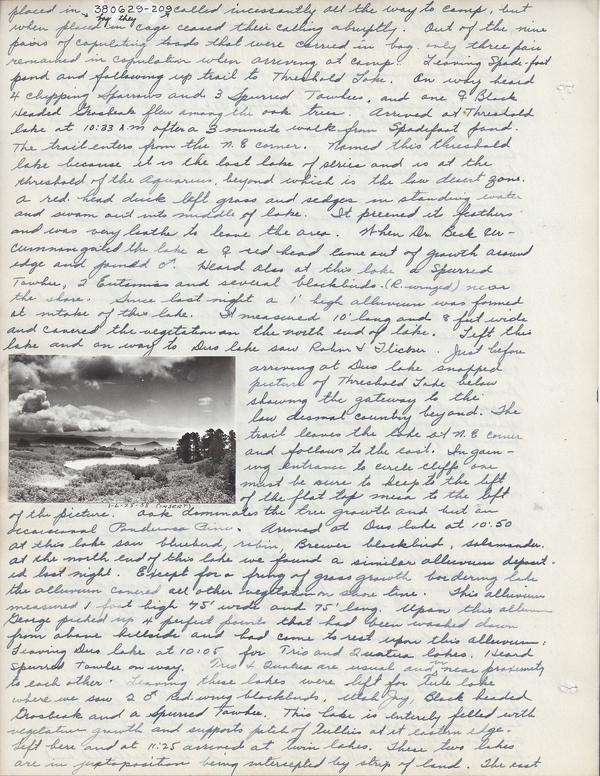 placed in 380629-209 called incessantly all the way to camp, but
when placed in cage ceased their calling abruptly. Out of the nine
by they
pairs of copulating toads that were carried in bag, only three pair
remained in copulation when arriving at camp. Leaving Spade-foot
pond and following up trail to Threshold Lake. On way heard
4 chipping Sparrows and 3 Spurred Towhees, and one ♀ Black
Headed Grosbeak flew among the oak trees. Arrived at Threshold
lake at 10:33 A.M after a 3 minute walk from Spadefoot pond.
The trail enters from the N.E corner. Named this threshold
lake because it is the last lake of series and is at the
threshold of the Aquarius, beyond which is the low desert zone.
A red head duck left grass and sedges in standing water
and swam out into middle of lake. It preened its feathers
and was very loathe to leave the area. When Dr. Beck cir-
cumnavigated the lake a ♀ red head came out of growth around
edge and joined ♂. Heard also at this lake a Spurred
Towhee, 2 Eutamias and several blackbirds. (R-winged) near
the shore. Since last night a 1' high alluvium was formed
at intake of this lake. It measured 10' long and 8 feet wide
and covered the vegetation on the north end of lake. Left this
lake and on way to Duo lake saw Robin & Flicker. Just before
arriving at Duo lake snapped
picture of Threshold Lake below
showing the gateway to the
low desmal country beyond. The
trail leaves the lake at N.E corner
and follows to the east. In gain-
ing entrance to circle cliffs one
must be sure to keep to the left
of the flat top mesa to the left
1-6-29-38 (INSERT)
of the picture. Oak dominates the tree growth and but an
occasional Ponderosa Pine. Arrived at Duo lake at 10:50
at this lake saw bluebird, robin, Brewer blackbird, salamander.
at the north end of this lake we found a similar alluvium deposit-
ed last night. Except for a fring of grass growth bordering lake
the alluvium covered all other vegetation on shore line. This alluvium
measured 1 foot high 75' wide and 75' long. Upon this alluvium
George picked up 4 perfect points that had been washed down
from above hillside and had come to rest upon this alluvium.
Leaving Duo lake at 10:05 for Trio and Quatra lakes. Heard
Spurred Towhee on way. Trio & Quatra are usual and in near proximity
to each other. Leaving these lakes were left for Tule lake
where we saw 2 ♂ Red-wing blackbirds, Utah Jay, Black headed
Grosbeak and a Spurred Towhee. This lake is entirely filled with
vegetative growth and supports patch of Tullies at it eastern edge.
Left here and at 11:25 arrived at twin lakes. These two lakes
are in juxtaposition being intercepted by strip of land. The east